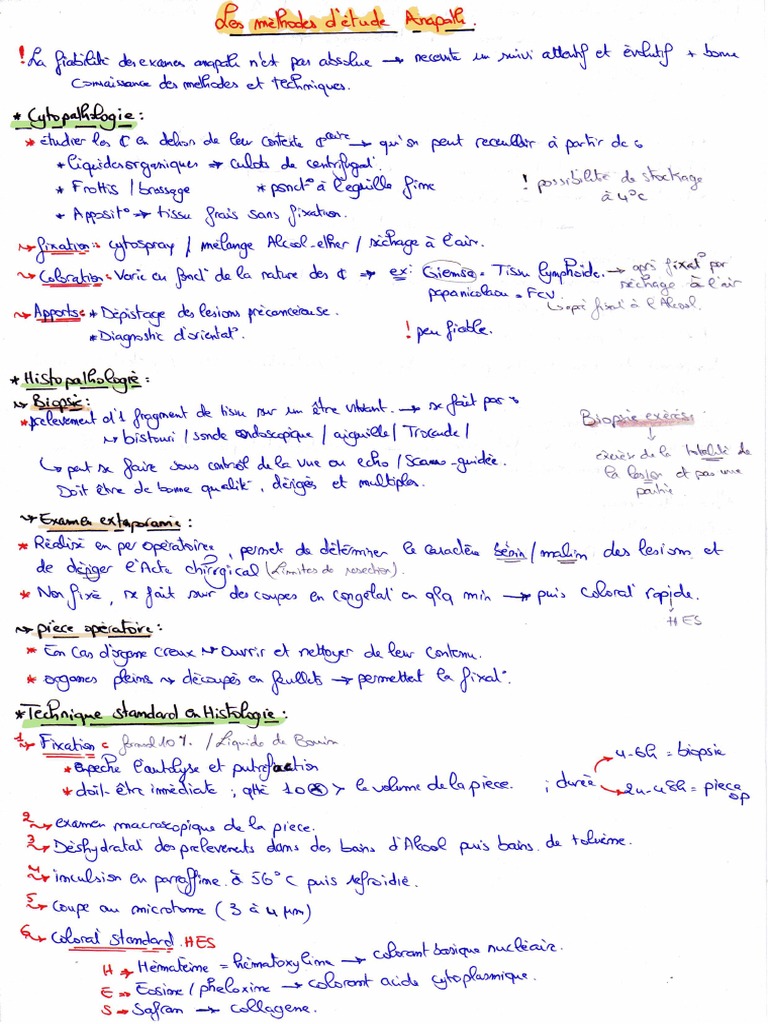 Les méthodes d'étude Anapath.
! La fiabilité des examens anapath n'est pas absolue → nécessite un suivi attentif et évolutif + bonne
connaissance des méthodes et techniques.
* Cytopathologie :
* étudier les ₵ en dehors de leur contexte ₵laire → qu'on peut recueillir à partir de :
* liquides organiques → culots de centrifugat°
* Frottis / brossage * ponct° à l'eguille fine
! possibilité de stockage
à 4°C
* Apposit° → tissu frais sans fixation.
↝ fixation : cytospray / mélange Alcool-ether / séchage à l'air.
↝ Coloration : Varie en fonct° de la nature des ₵ → ex : Giemsa = Tissu lymphoïde. → après fixat° par
séchage à l'air
papanicolaou = FCV
↳ après fixat° à l'Alcool.
↝ Apports : * Dépistage des lesions précancéreuse.
* Diagnostic d'orientat°.
! peu fiable.
* Histopathologie :
↝ Biopsie :
* prelevement d'1 fragment de tissu sur un être vivant. → se fait par :
↝ bistouri / sonde endoscopique / aiguille / Trocade /
↳ peut se faire sous control de la vue ou echo / Scano-guidée.
Doit être de bonne qualité, dérigés et multiples.
Biopsie exérèse
↓
exérèse de la totalité de
la lesion et pas une
partie.
↝ Examen extemporamie :
* Réalisé en per opératoire, permet de déterminer le caractère bénin / malin des lesions et
de dériger l'Acte chirurgical (Limites de resection).
* Non fixé, se fait sur des coupes en congelat° en qlq min → puis colorat° rapide.
HES
↝ pièce opératoire :
* En cas d'organe creux ↝ ouvrir et nettoyer de leur contenu.
* organes pleins ↝ découpés en feuillets → permettent la fixat°.
* Technique standard en Histologie :
1 ↝ Fixation : formol 10% / Liquide de Bouin
* empeche l'autolyse et putrefaction
* doit-être immédiate ; qtté 10 > le volume de la pièce. ; durée
4-6h = biopsie
24-48h = piece
op
2 ↝ examen macroscopique de la piece.
3 ↝ Déshydratat° des prelevements dans des bains d'Alcool puis bains de toluème.
4 ↝ inculsion en paraffime à 56°C puis refroidie.
5 ↝ Coupe au microtome (3 à 4 μm)
6 ↝ Colorat° standard HES
H → Hémateïne = hématoxylime → colorant basique nucléair.
E → Eosine / phloxime → colorant acide cytoplasmique.
S → Safran → collagene.